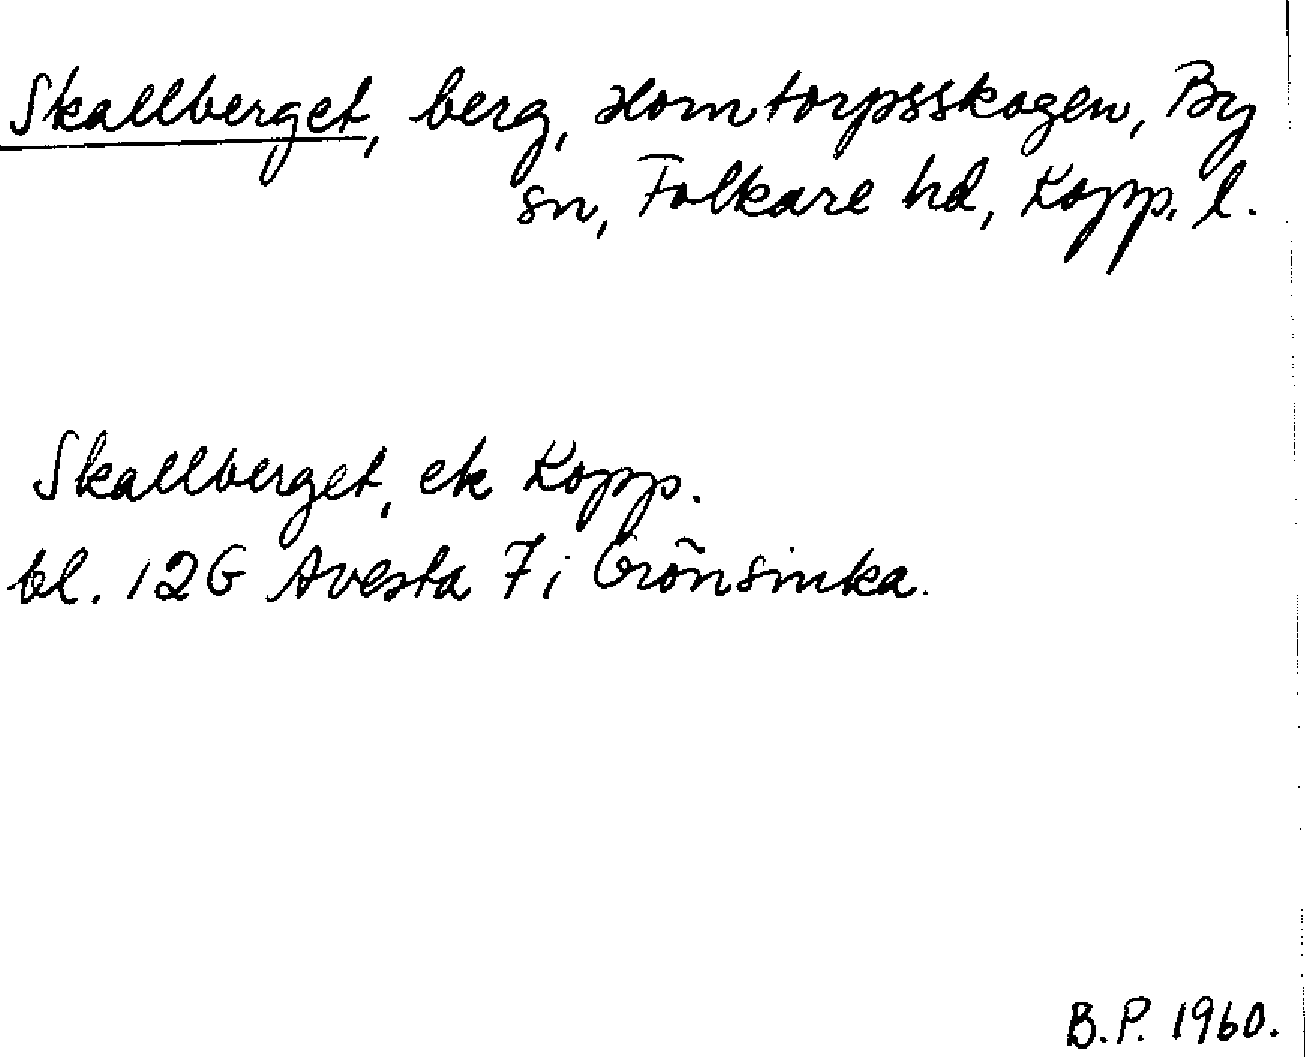 Skallberget, berg, Homtorpsskogen, By
sn, Folkare hd, Kopp. l.
Skallberget, ek Kopp.
bl. 12G Avesta 7i Grönsinka.
B.P. 1960.